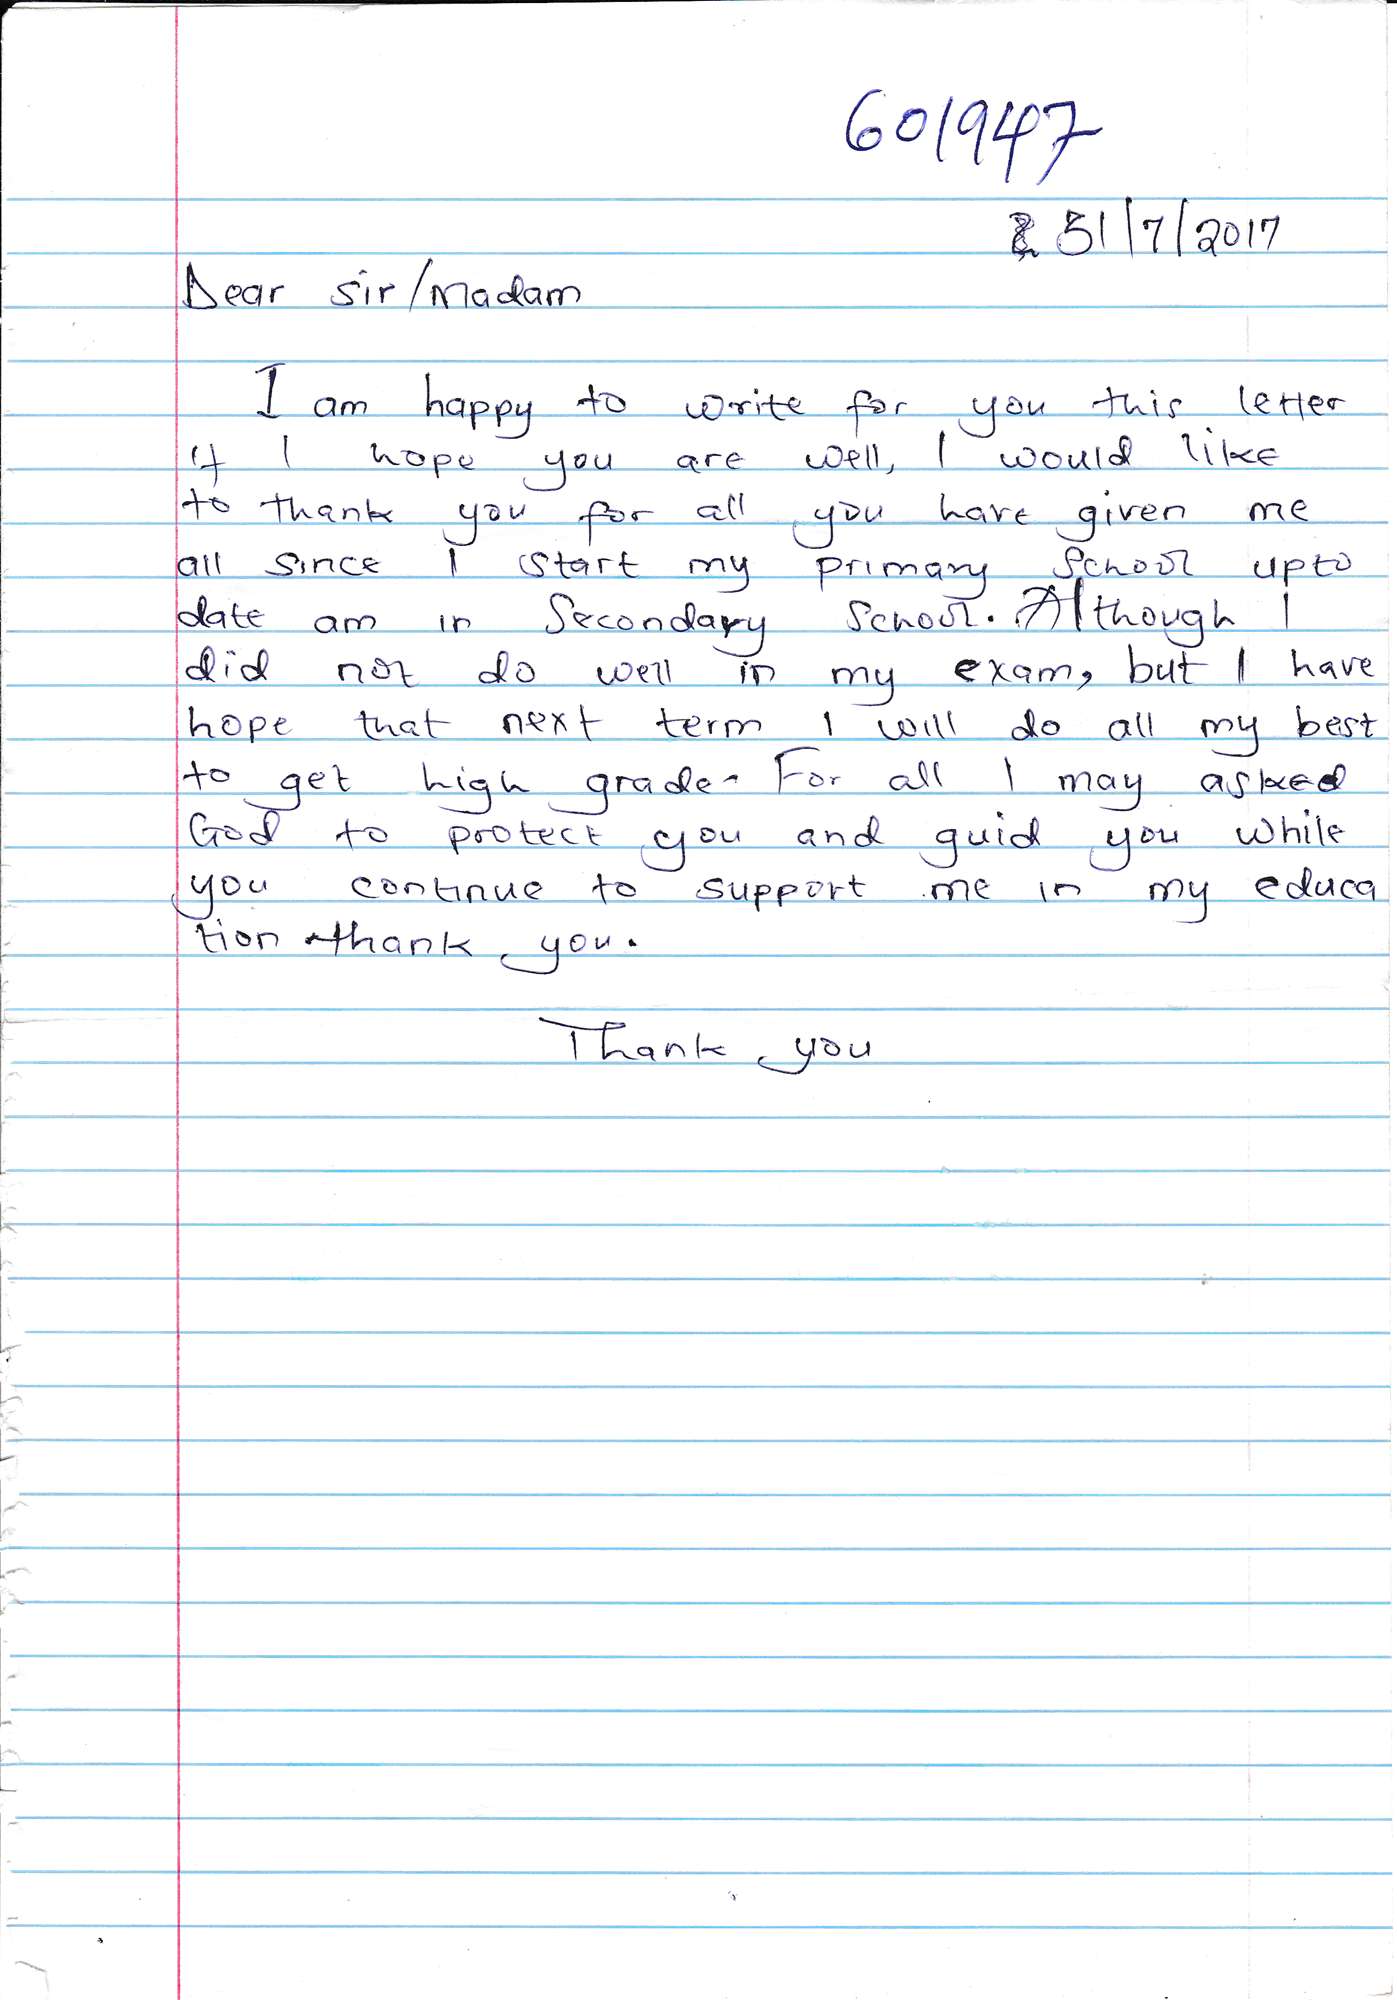 601947
31/7/2017
Dear Sir/Madam
I am happy to write for you this letter
if I hope you are well, I would like
to thank you for all you have given me
all since I start my primary School upto
date am in Secondary School. Although I
did not do well in my exam, but I have
hope that next term I will do all my best
to get high grade. For all I may asked
God to protect you and guid you while
you continue to support me in my educa
tion thank you.
Thank you